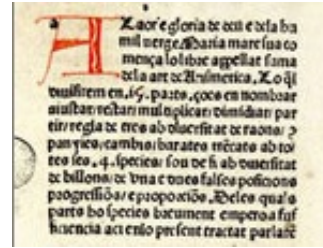 A Laor e gloria de deu e dela hu
mil verge Maria mare sua co
mença lo libre appellat suma
dela art de Arismetica. Lo ql̄
diuisirem en .16. parts. ços en nombrar
aiustar/restar/multiplicar/dimidiar/par
tir/regla de tres ab diuersitat de raons/
panyies/cambis/barates ab to
tes ses .4. species/ ab diuersitat
de billons/de vna e dues falses posicions
progressiōs/e proporciōs. Deles quals
parts ho species breument empero a suf
ficiencia aci enlo present tractat parlarē